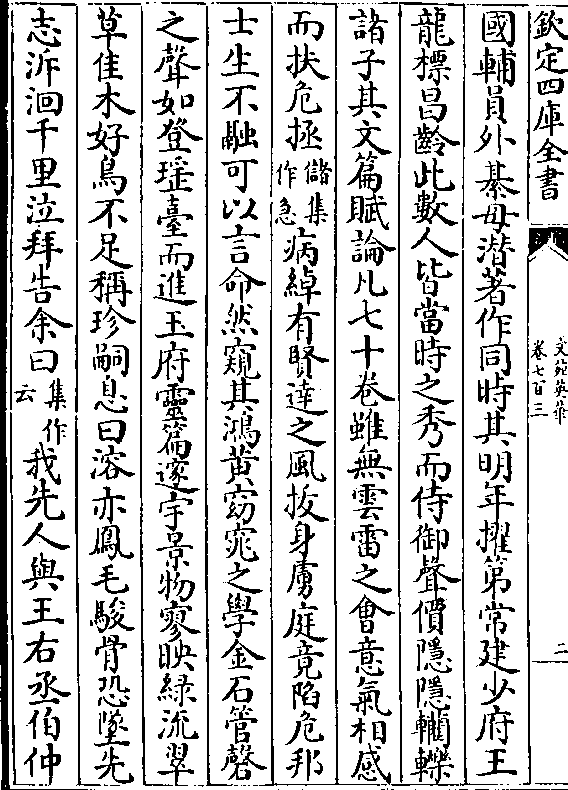 欽定四庫全書
文苑英華
卷七百三
二
國輔員外綦毋潛著作同時其明年擢第常建少府王
龍標昌齡此數人皆當時之秀而侍御聲價隱隱轥轢
諸子其文篇賦論凡七十卷雖無雲雷之會意氣相感
而扶危拯儲集作急病綽有賢達之風拔身虜庭竟陷危邦
士生不融可以言命然窺其鴻黃窈窕之學金石管磬
之聲如登瑶臺而進玉府靈篇邃宇景物寥映綠流翠
草佳木好鳥不足稱珍嗣息曰溶亦鳳毛駿骨恐墜先
志泝洄千里泣拜告余曰集作云我先人與王右丞伯仲